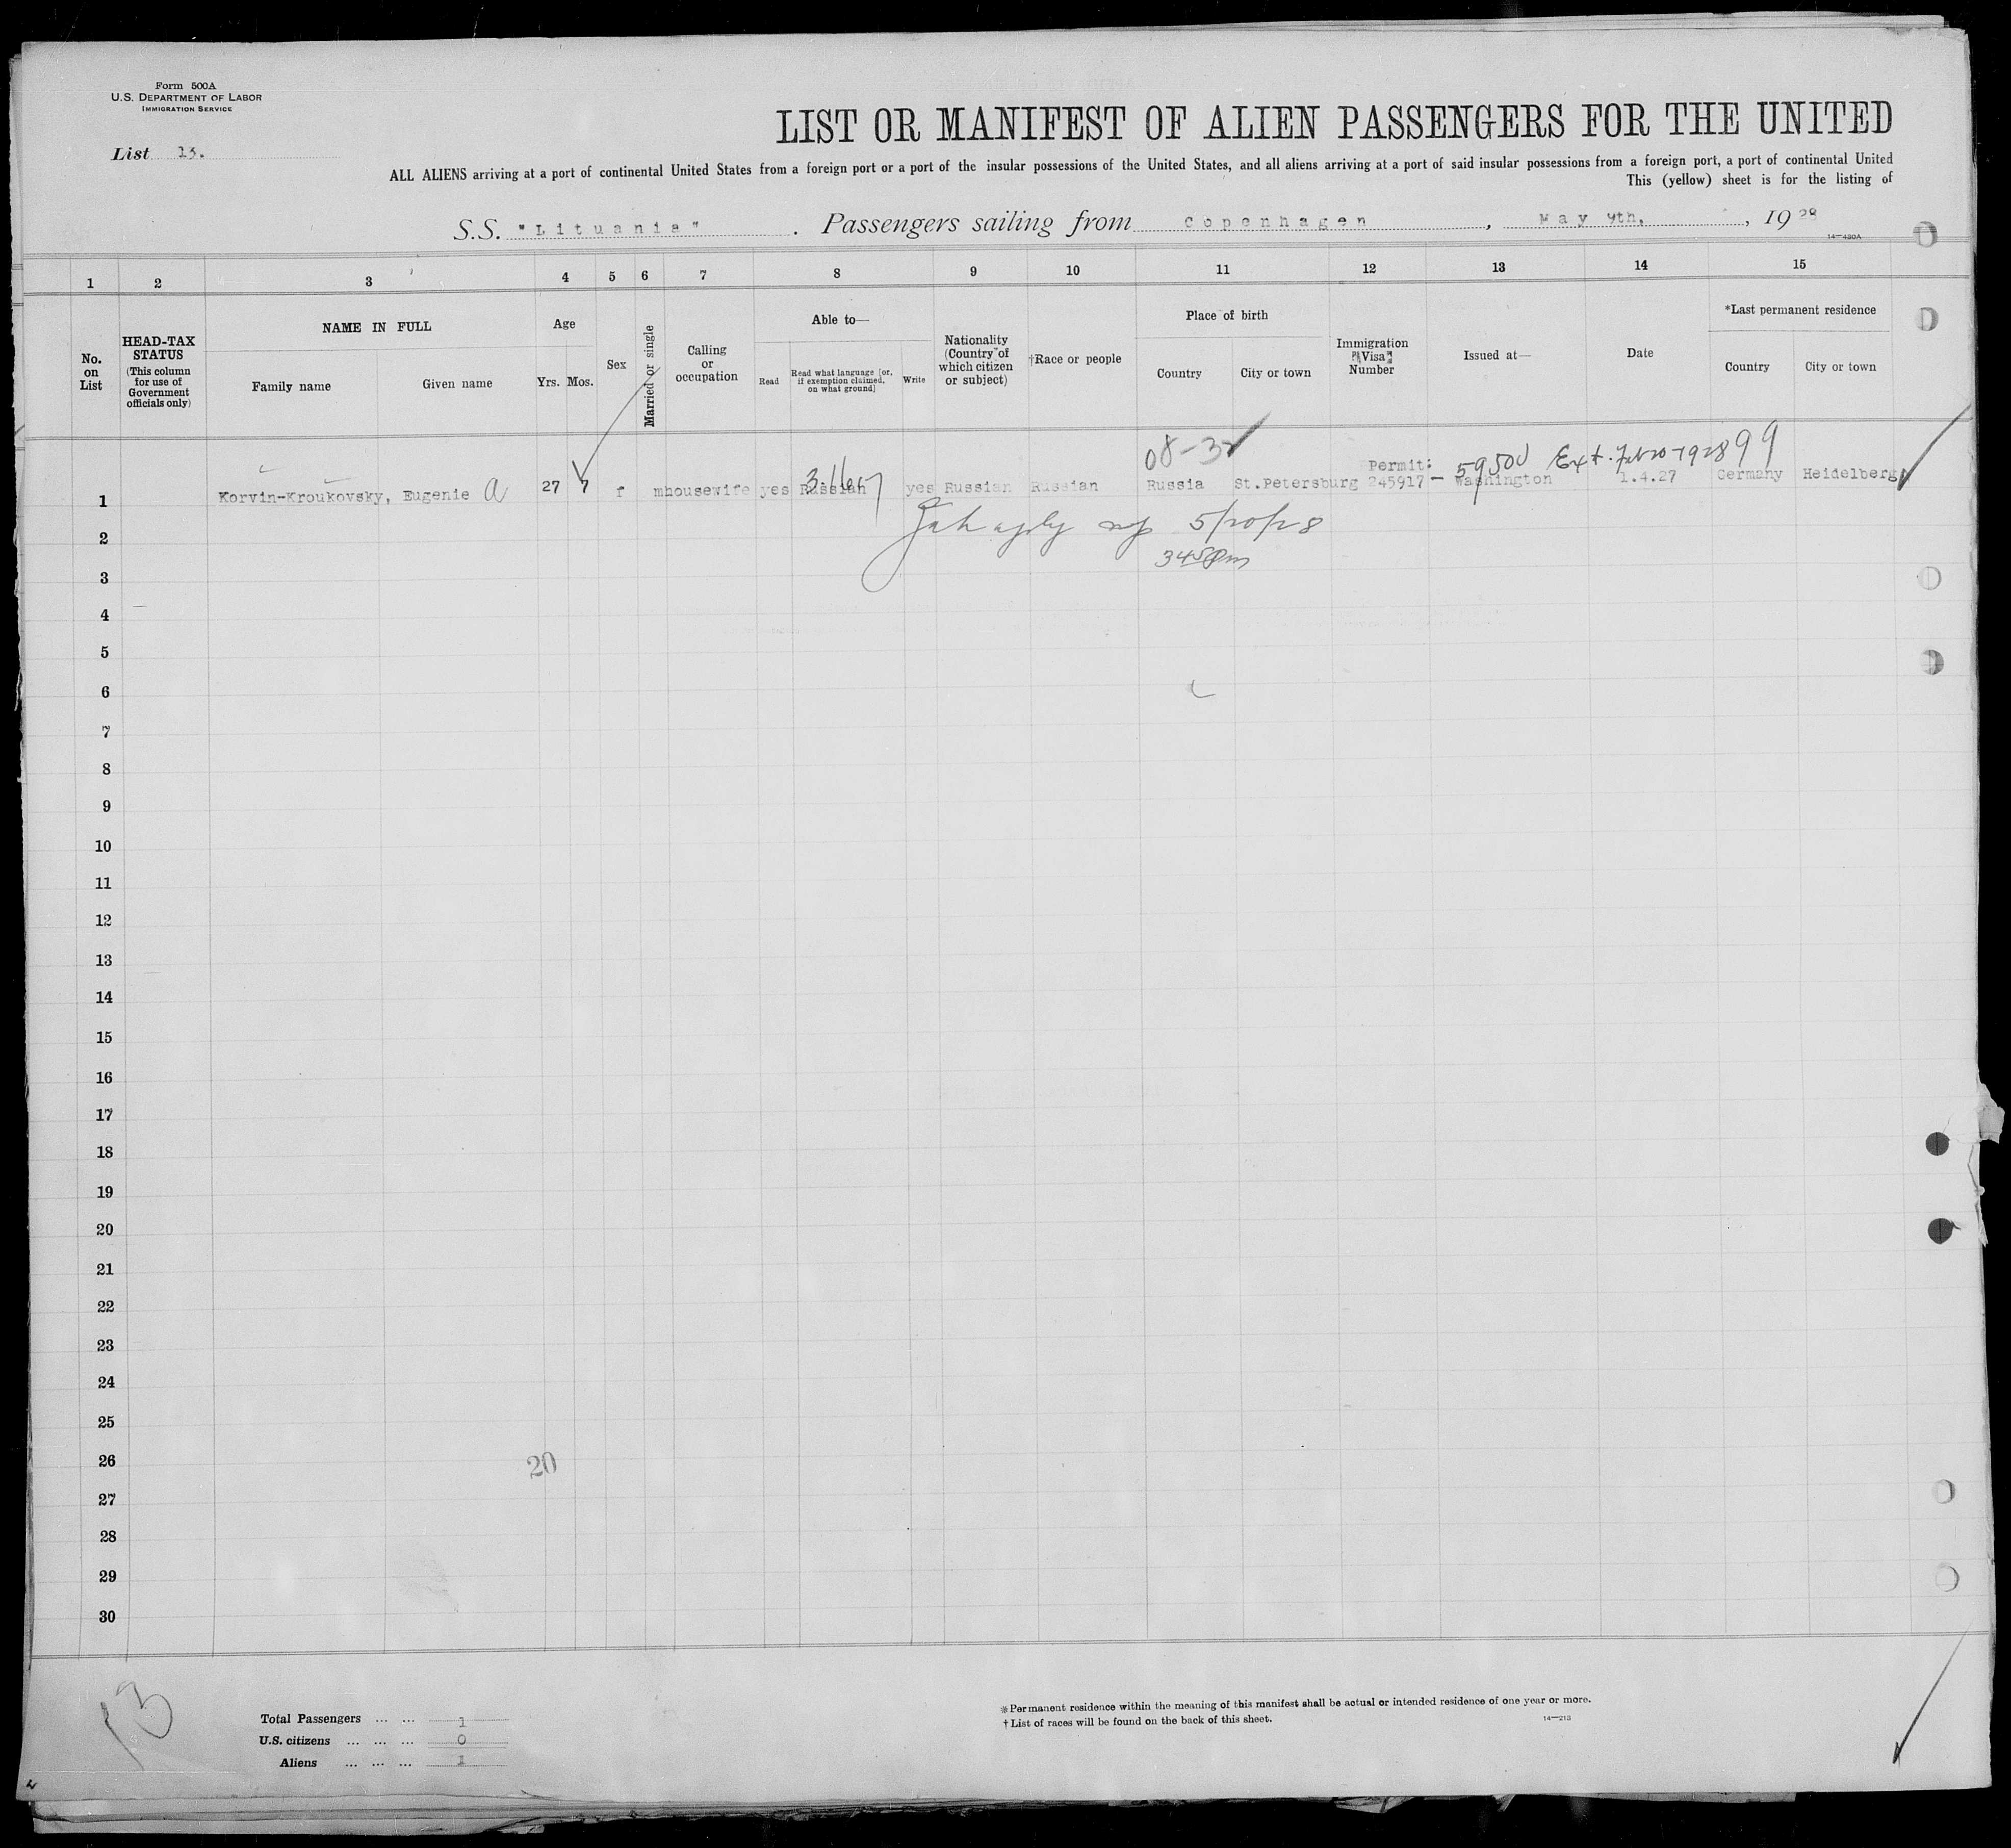 Form 500A
U.S. DEPARTMENT OF LABOR
IMMIGRATION SERVICE
List 13.
LIST OR MANIFEST OF ALIEN PASSENGERS FOR THE UNITED
ALL ALIENS arriving at a port of continental United States from a foreign port or a port of the insular possessions of the United States, and all aliens arriving at a port of said insular possessions from a foreign port, a port of continental United
This (yellow) sheet is for the listing of
S.S. "Lituania". Passengers sailing from Copenhagen, May 9th, , 1928
14—430A
1 2 3 4 5 6 7 8 9 10 11 12 13 14 15
No. on List
HEAD-TAX STATUS (This column for use of Government officials only)
NAME IN FULL
Family name Given name
Age
Yrs. Mos.
Sex
Married or single
Calling or occupation
Able to—
Read
Read what language [or, if exemption claimed, on what ground]
Write
Nationality (Country of which citizen or subject)
†Race or people
Place of birth
Country City or town
Immigration Visa Number
Issued at—
Date
*Last permanent residence
Country City or town
08-32
59500 Ext. 1928 99
Permit:
1 Korvin-Kroukovsky, Eugenie a 27 7 f m housewife yes Russian yes Russian Russian Russia St.Petersburg 245917 - Washington 1.4.27 Germany Heidelberg
5/20/28
345 pm
2
3
4
5
6
7
8
9
10
11
12
13
14
15
16
17
18
19
20
21
22
23
24
25
26
20
27
28
29
30
13
Total Passengers ... ... 1
U.S. citizens ... ... ... 0
Aliens ... ... ... 1
*Permanent residence within the meaning of this manifest shall be actual or intended residence of one year or more.
†List of races will be found on the back of this sheet.
14—213